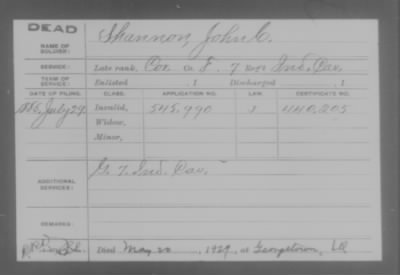 DEAD
NAME OF SOLDIER: Shannon, John C.
SERVICE: Late rank, Cor. Co. F. 7 Reg't Ind. Cav.
TERM OF SERVICE: Enlisted , 1 Discharged , 1
DATE OF FILING. CLASS. APPLICATION NO. LAW. CERTIFICATE NO.
1885, July 29 Invalid, 545.990 440,205
Widow,
Minor,
ADDITIONAL SERVICES: G. 7. Ind. Cav.
REMARKS:
Died May 20, 1929, at Georgetown,